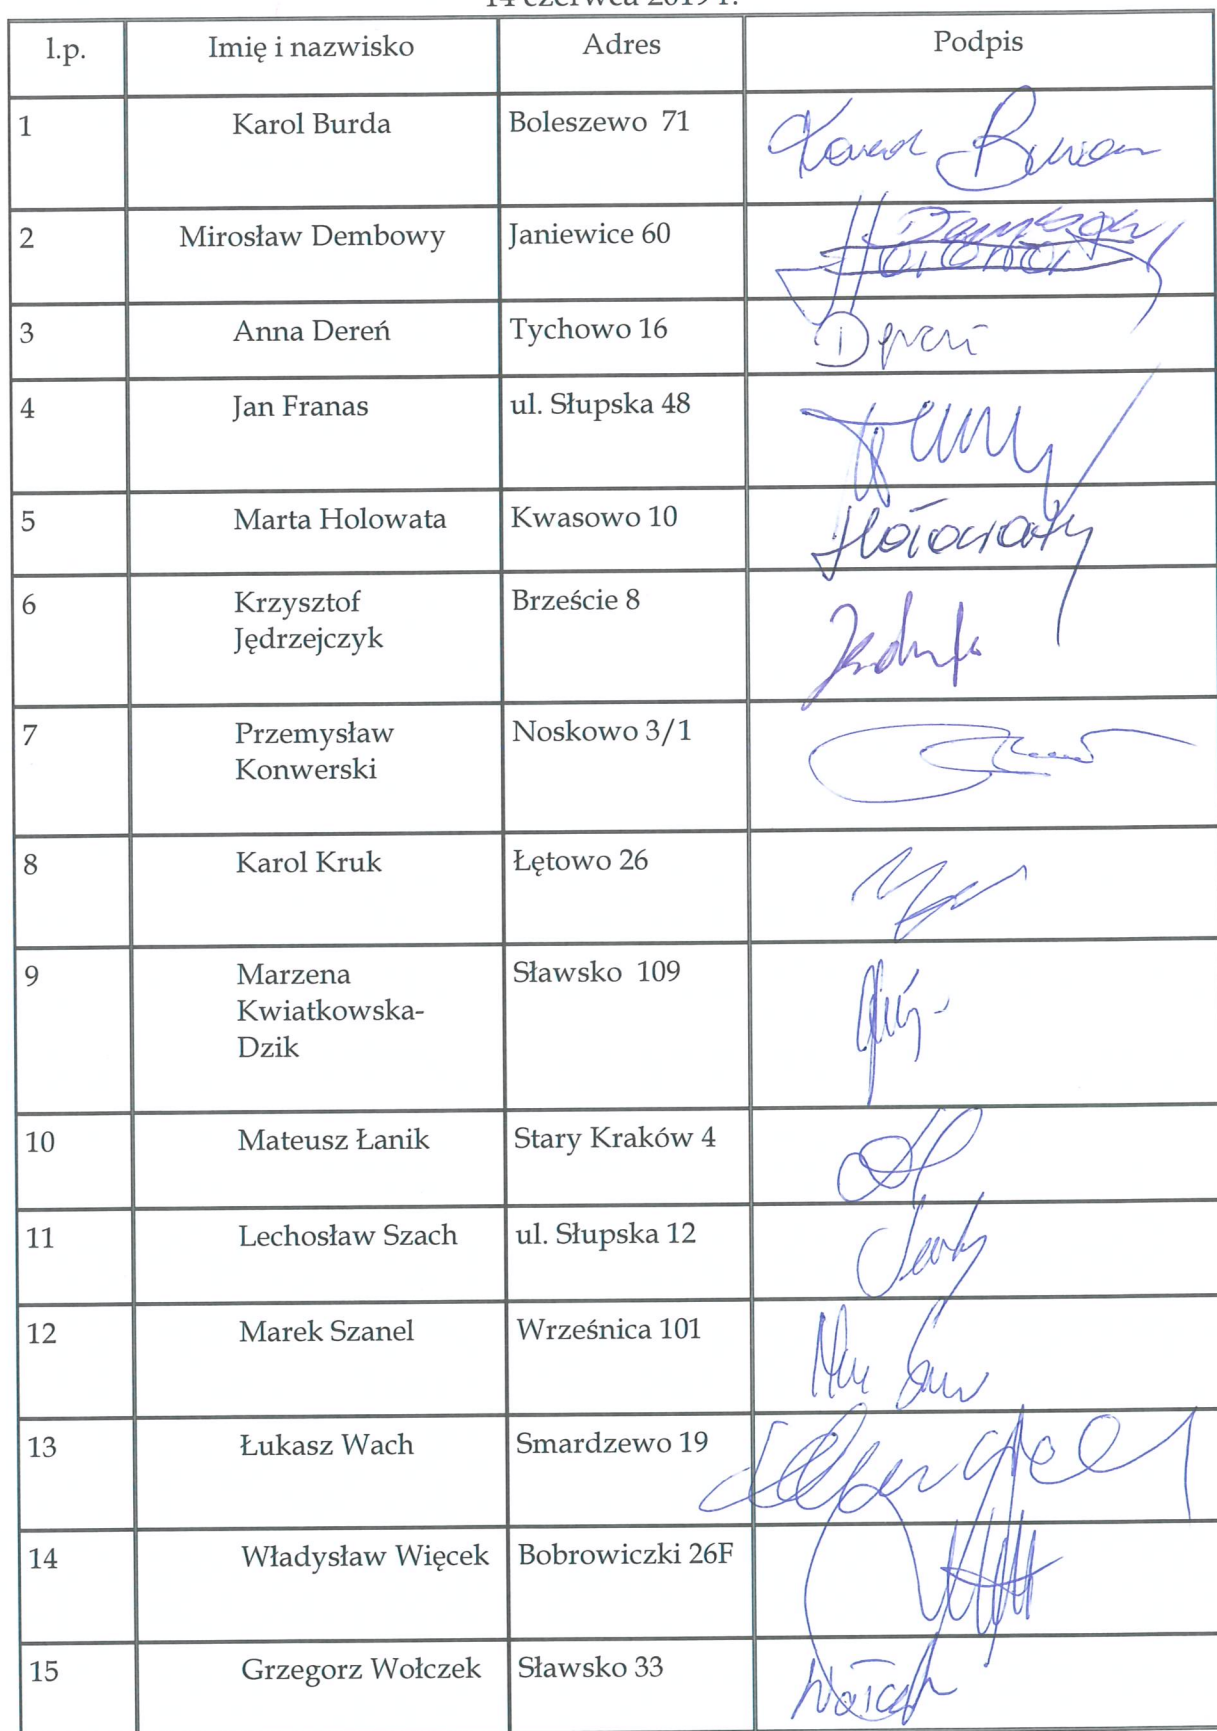 14 czerwca 2019 r.
l.p. Imię i nazwisko Adres Podpis
1 Karol Burda Boleszewo 71
2 Mirosław Dembowy Janiewice 60
3 Anna Dereń Tychowo 16 Dereń
4 Jan Franas ul. Słupska 48
5 Marta Holowata Kwasowo 10
6 Krzysztof Brzeście 8
Jędrzejczyk
7 Przemysław Noskowo 3/1
Konwerski
8 Karol Kruk Łętowo 26
9 Marzena Sławsko 109
Kwiatkowska-
Dzik
10 Mateusz Łanik Stary Kraków 4
11 Lechosław Szach ul. Słupska 12
12 Marek Szanel Wrześnica 101
13 Łukasz Wach Smardzewo 19
14 Władysław Więcek Bobrowiczki 26F
15 Grzegorz Wołczek Sławsko 33